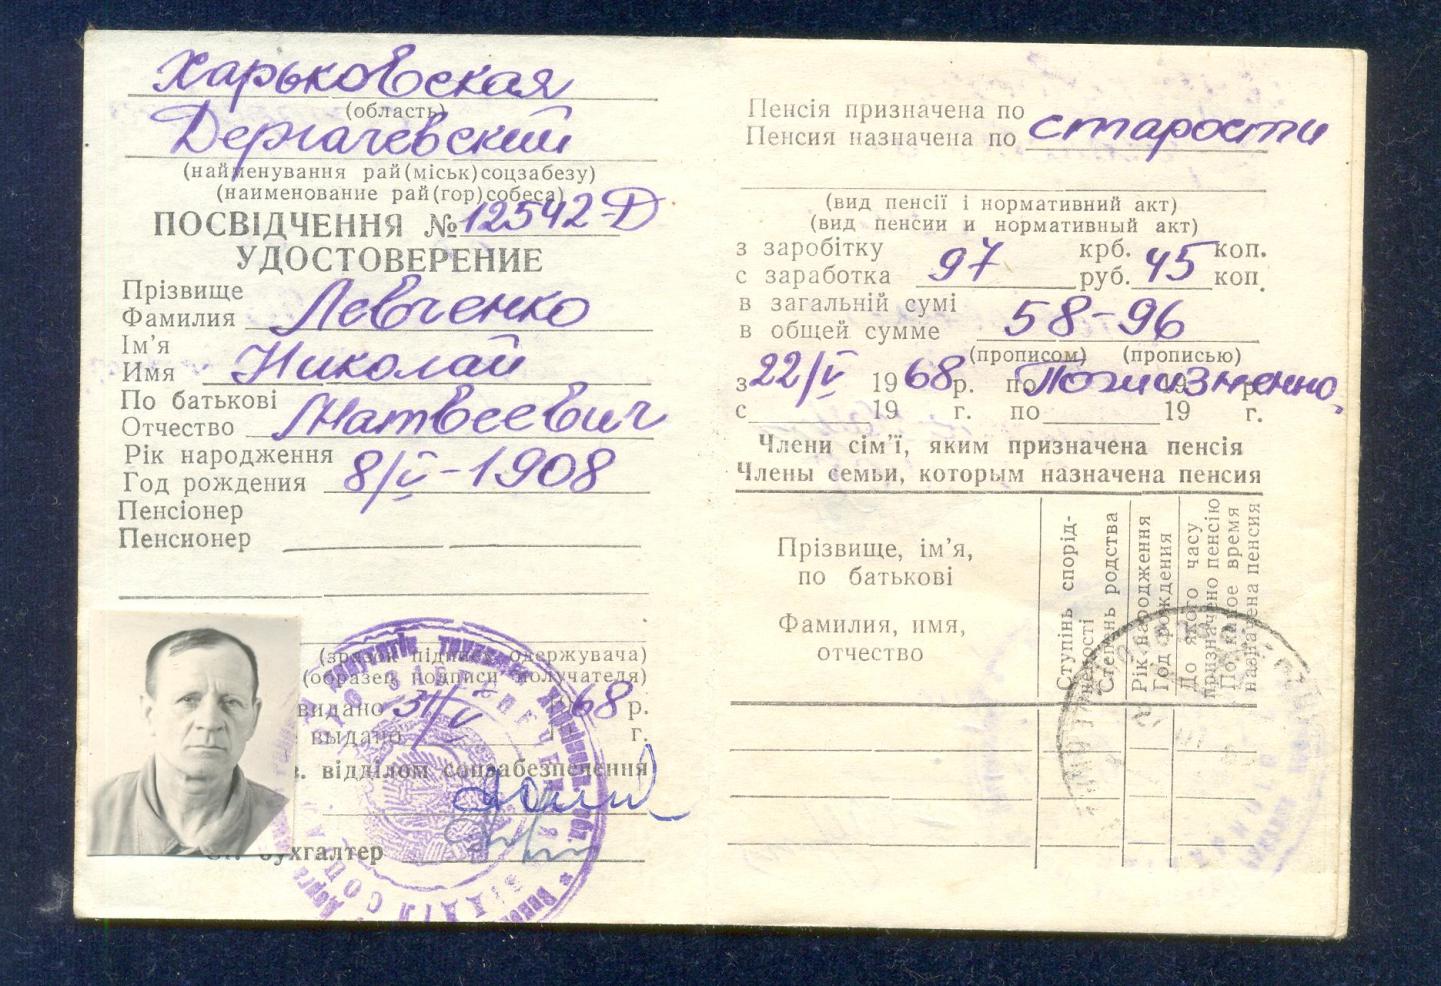 Харьковская
(область)
Дергачевский
(найменування рай(міськ)соцзабезу)
(наименование рай(гор)собеса)
ПОСВІДЧЕННЯ № 12542-Д
УДОСТОВЕРЕНИЕ
Прізвище
Фамилия Левченко
Ім'я
Имя Николай
По батькові
Отчество Матвеевич
Рік народження
Год рождения 8/V-1908
Пенсіонер
Пенсионер
(зразок підпису одержувача)
(образец подписи получателя)
видано 31/V 1968 р.
выдано г.
в. відділом соцзабезпечення
бухгалтер
Пенсія призначена по
Пенсия назначена по старости
(вид пенсії і нормативний акт)
(вид пенсии и нормативный акт)
з заробітку крб. коп.
с заработка 97 руб. 45 коп.
в загальній сумі
в общей сумме 58-96
(прописом) (прописью)
з 22/V 1968 р. по Пожизненно 19 р.
с 19 г. по 19 г.
Члени сім'ї, яким призначена пенсія
Члены семьи, которым назначена пенсия
Прізвище, ім'я,
по батькові
Фамилия, имя,
отчество
Ступінь спорідненості
Степень родства
Рік народження
Год рождения
До якого часу
призначено пенсію
По какое время
назначена пенсия